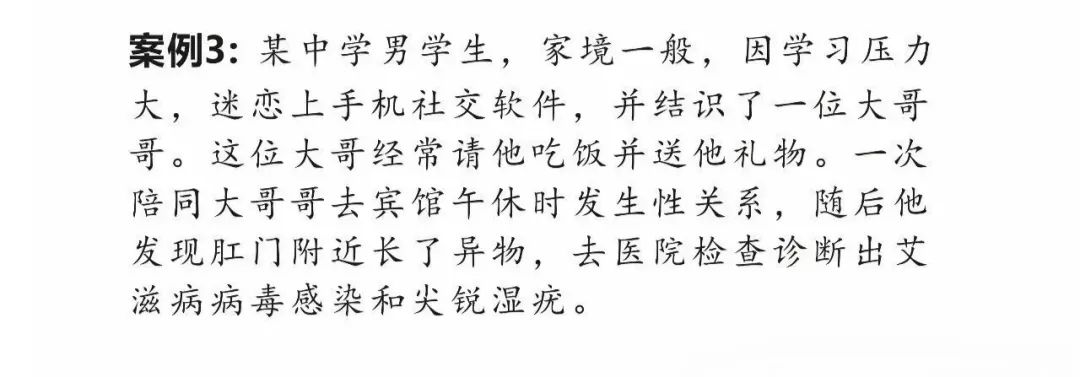 案例3: 某中学男学生，家境一般，因学习压力
大，迷恋上手机社交软件，并结识了一位大哥
哥。这位大哥经常请他吃饭并送他礼物。一次
陪同大哥哥去宾馆午休时发生性关系，随后他
发现肛门附近长了异物，去医院检查诊断出艾
滋病病毒感染和尖锐湿疣。